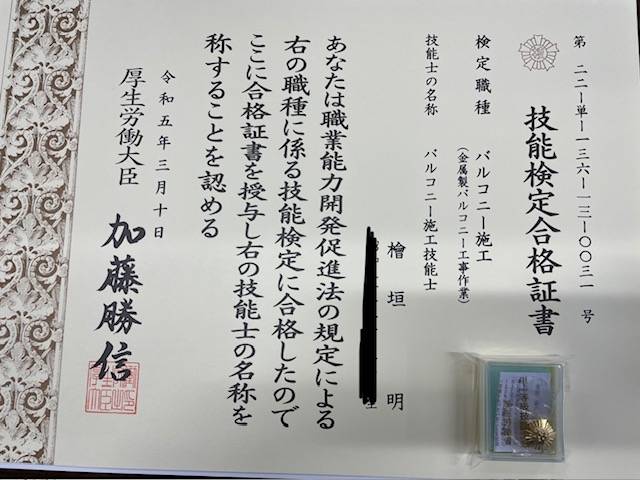 第 二二ー単ー一三六ー一三ー〇〇三一 号
技能検定合格証書
検定職種 バルコニー施工
(金属製バルコニー工事作業)
技能士の名称 バルコニー施工技能士
檜垣 明
あなたは職業能力開発促進法の規定による
右の職種に係る技能検定に合格したので
ここに合格証書を授与し右の技能士の名称を
称することを認める
令和五年三月十日
厚生労働大臣 加藤勝信